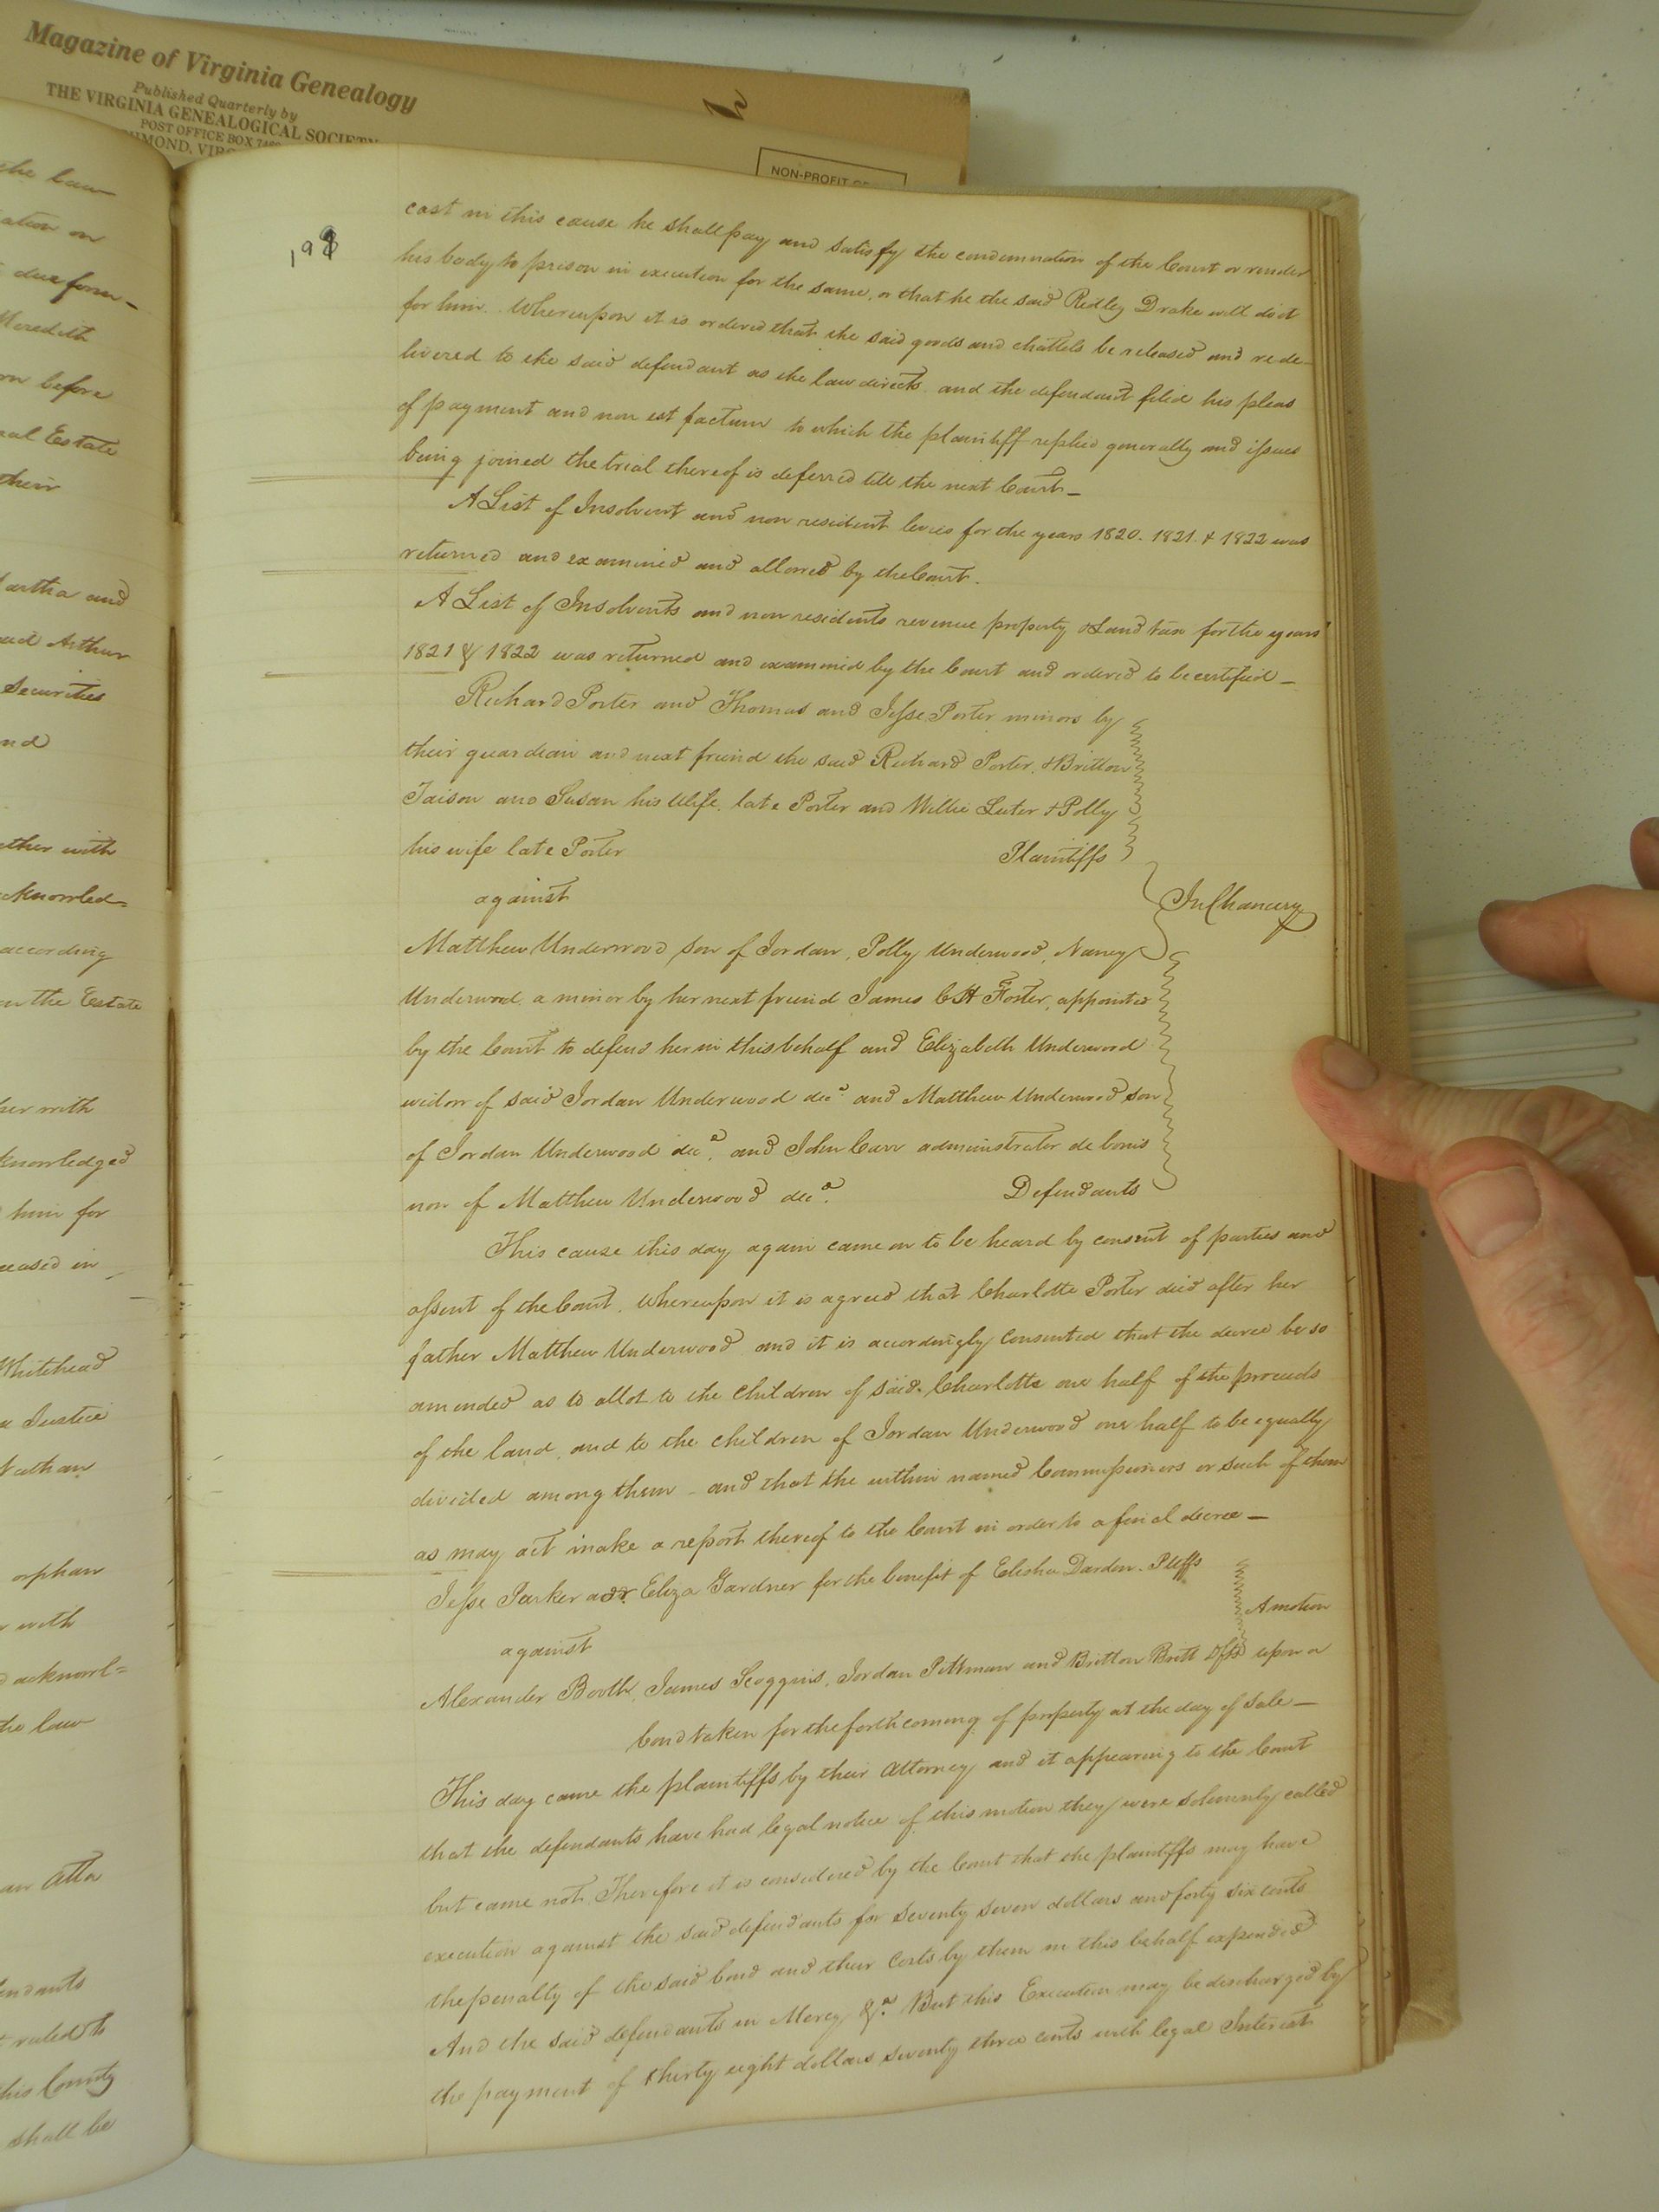 Magazine of Virginia Genealogy
Published Quarterly by
THE VIRGINIA GENEALOGICAL SOCIETY
POST OFFICE BOX
NON-PROFIT
the law
ation on
due form
Meredith
before
Estate
their
artha and
Arthur
Securities
nd
ether with
cknowled=
according
the Estate
her with
knowledged
him for
eased in
Whitehead
Justice
Nathan
orphan
with
acknowl=
the law
Atto
endants
ruled to
this County
shall be
198
cast in this cause he shall pay and satisfy the condemnation of the Court or render
his body to prison in execution for the same, or that he the said Ridley Drake will do it
for him. Whereupon it is ordered that the said goods and chattels be released and rede-
livered to the said defendant as the law directs. and the defendant filed his pleas
of payment and non est factum to which the plaintiff replied generally and issues
being joined the trial thereof is deferred till the next Court-
A List of Insolvent and non resident levies for the years 1820. 1821. & 1822 was
returned and examined and allowed by the Court.
A List of Insolvents and non residents revenue property & Land tax for the years
1821 & 1822 was returned and examined by the Court and ordered to be certified-
Richard Porter and Thomas and Jesse Porter minors by
their guardian and next friend the said Richard Porter, & Britton
Jaison and Susan his Wife, late Porter and Willie Luter & Polly
his wife late Porter Plaintiffs
against
In Chancery
Matthew Underwood son of Jordan, Polly Underwood, Nancy
Underwood, a minor by her next friend James Foster, appointed
by the Court to defend her in this behalf and Elizabeth Underwood
widow of said Jordan Underwood decd and Matthew Underwood son
of Jordan Underwood decd. and John Carr administrator de bonis
non of Matthew Underwood decd. Defendants
This cause this day again came on to be heard by consent of parties and
assent of the Court. Whereupon it is agreed that Charlotte Porter died after her
father Matthew Underwood and it is accordingly consented that the decree be so
amended as to allot to the Children of said Charlotte one half of the proceeds
of the land, and to the Children of Jordan Underwood one half to be equally
divided among them - and that the within named Commissioners or such of them
as may act make a report thereof to the Court in order to a final decree-
Jesse Parker adr. Eliza Gardner for the benefit of Elisha Darden. Pltffs
A motion
against
Alexander Booth, James Scoggins, Jordan Pittman and Britton Britt Dfts upon a
bond taken for the forthcoming of property at the day of sale-
This day came the plaintiffs by their Attorney and it appearing to the Court
that the defendants have had legal notice of this motion they were solemnly called
but came not. Therefore it is considered by the Court that the plaintiffs may have
execution against the said defendants for seventy seven dollars and forty six cents
the penalty of the said bond and their Costs by them in this behalf expended
And the said defendants in Mercy &c. But this Execution may be discharged by
the payment of thirty eight dollars seventy three cents with legal Interest